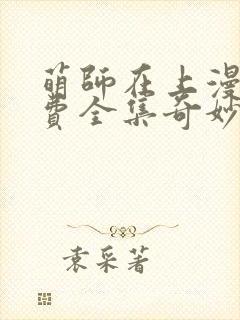 萌師在上漫
費全集奇妙
袁采著